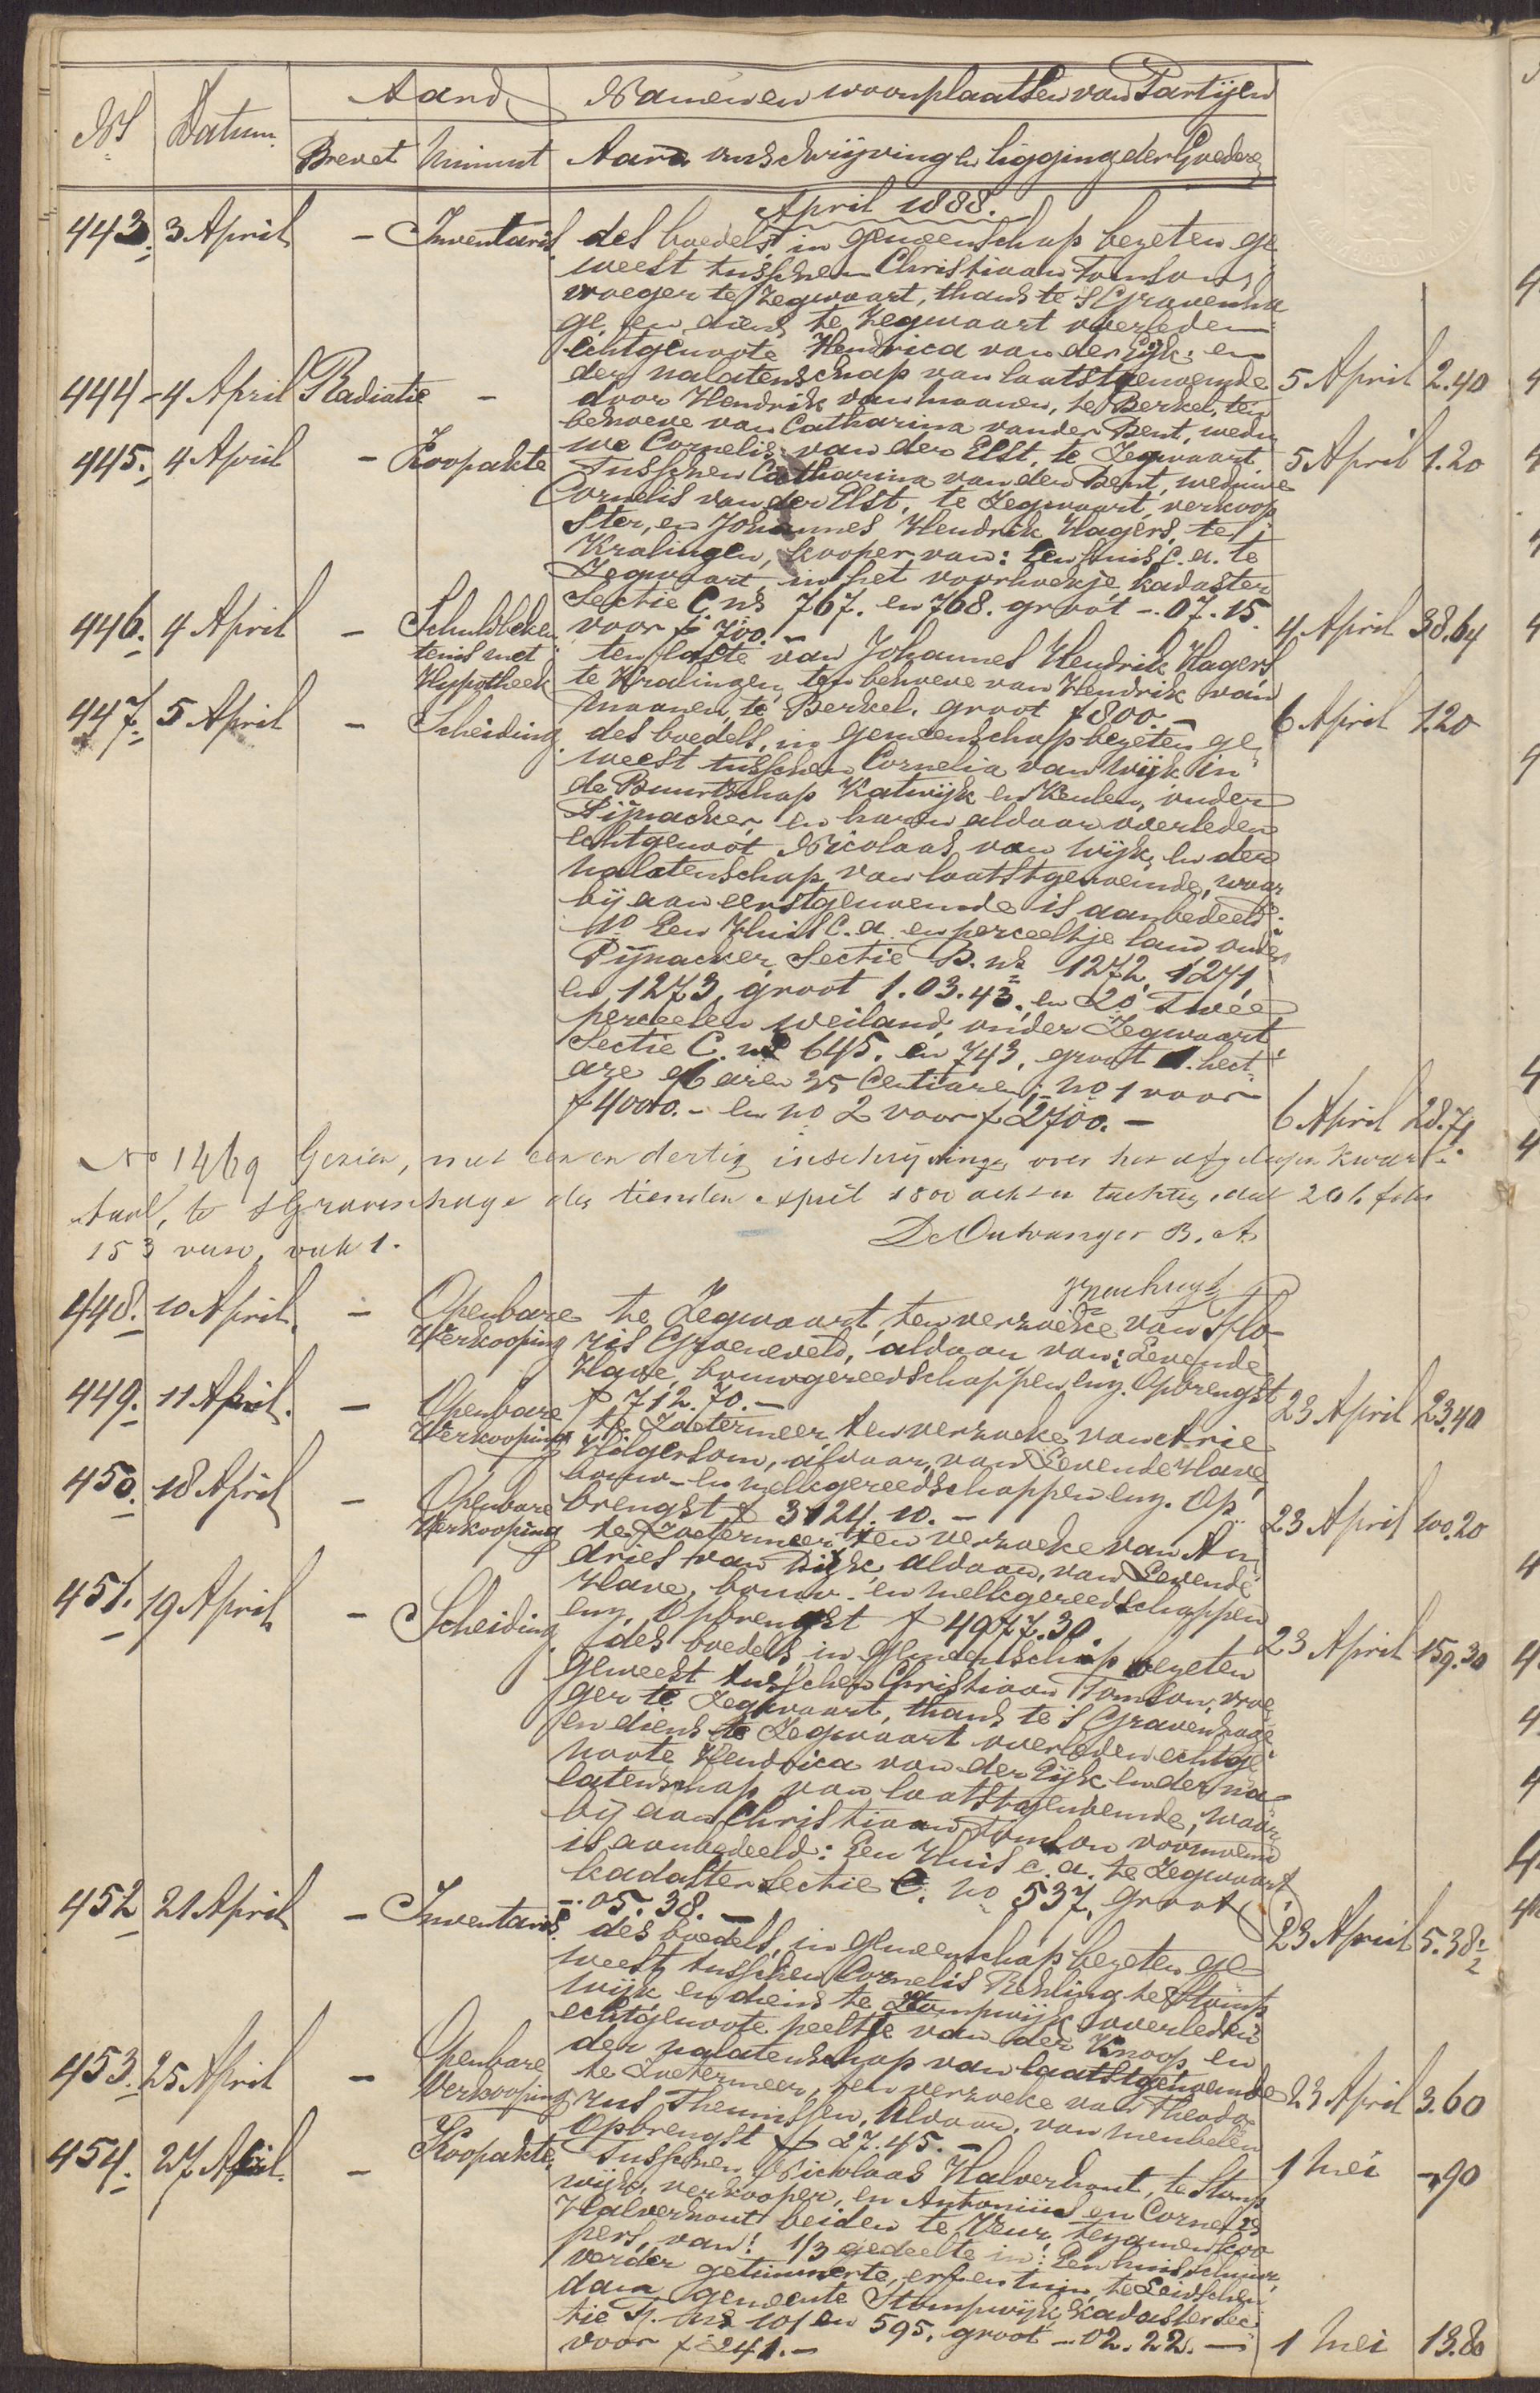 Ns Datum Aard Namen en woonplaatsen van Partijen
Brevet Minuut Aard omschrijving en ligging der Goederen
April 1888.
443. 3 April - Inventaris des boedels, in gemeenschap bezeten ge
weest tusschen Christiaan Tomson,
vroeger te Zegwaart, thans te 's Gravenha
ge, en diens te Zegwaart overleden
echtgenoote Hendrica van der Eijk, en
der nalatenschap van laatstgenoemde 5 April 2.40
444 - 4 April Radiatie - door Hendrik van Maanen, te Berkel, ten
behoeve van Catharina van der Bent, wedu
we Cornelis van der Elst, te Zegwaart. 5 April 1.20
445. 4 April - Koopakte Tusschen Catharina van der Bent, weduwe
Cornelis van der Elst, te Zegwaart, verkoop
ster, en Johannes Hendrik Hagers, te
Kralingen, kooper van: Een huis c.a. te
Zegwaart, in het voorhoekje, kadaster
Sectie C ns 767. en 768. groot -. 07. 15.
voor f 700.- 4 April 38.64
446. 4 April - Schuldbeken
tenis met
Hypotheek ten laste van Johannes Hendrik Hagers,
te Kralingen, ten behoeve van Hendrik van
Maanen, te Berkel, groot f 800.- 6 April 1.20
447. 5 April - Scheiding des boedels, in gemeenschap bezeten ge
weest tusschen Cornelia van Wijk in
de Buurtschap Katwijk en Keulen, onder
Pijnacker, en haren aldaar overleden
echtgenoot Nicolaas van Wijk, en der
nalatenschap van laatstgenoemde, waar
bij aan eerstgenoemde is aanbedeeld:
1o Een Huis c.a. en perceeltje land onder
Pijnacker, Sectie B. ns 1272, 1271,
en 1273, groot 1.03.43, en 2o Twee
perceelen weiland, onder Zegwaart,
Sectie C. ns 645. en 743, groot 1. hect
are 96 aren 35 Centiaren; no 1 voor
f 4000.- en no 2 voor f 2700.- 6 April 28.71
No 1469 Gezien, met een en dertig inschrijvingen over het afgeloopen kwar
taal, te 's Gravenhage den tienden April 1800 acht en tachtig, deel 206 folio
153 verso, vak 1.
De Ontvanger B. A.
448. 10 April. - Openbare
Verkooping te Zegwaart, ten verzoeke van Flo-
ris Groeneveld, aldaar van: Levende
Have, bouwgereedschappen, enz. Opbrengst
f 712.70.- 23 April 23.40
449. 11 April. - Openbare
Verkooping te Zoetermeer, ten verzoeke van Arie
Hilgersom, aldaar, van Levende Have,
bouw- en melkgereedschappen, enz. Op
brengst f 3124.10.- 23 April 100.20
450. 18 April - Openbare
Verkooping te Zoetermeer, ten verzoeke van An
dries van Dijk, aldaar, van Levende
Have, bouw- en melkgereedschappen
enz. Opbrengst f 4977.30. 23 April 159.30
451. 19 April - Scheiding des boedels, in gemeenschap bezeten
geweest tusschen Christiaan Tomson, vroe
ger te Zegwaart, thans te 's Gravenhage
en diens te Zegwaart overleden echtge
noote Hendrica van der Eijk en der na-
latenschap van laatstgenoemde, waar
bij aan Christiaan Tomson voornoemd
is aanbedeeld: Een Huis c.a. te Zegwaart
kadaster Sectie C. no 537, groot
-. 05. 38. - 23 April 5.38½
452 21 April - Inventaris. des boedels, in gemeenschap bezeten ge-
weest tusschen Cornelis Rehling te Stomp
wijk en diens te Stompwijk overleden
echtgenoote Peeltje van der Knoop, en
der nalatenschap van laatstgenoemde 23 April 3.60
453. 25 April - Openbare
Verkooping te Zoetermeer, ten verzoeke van Theodo
rus Theunissen, aldaar, van meubelen
Opbrengst f 27.45.- 1 Mei -.90
454. 27 April. - Koopakte. Tusschen Nicolaas Halverhout, te Stomp
wijk, verkooper, en Antonius en Cornelis
Halverhout beiden te Veur, tezamen koo
pers, van: 1/3 gedeelte in: Een huis, schuur,
verder getimmerte, erf en tuin, te Leidschen
dam gemeente Stompwijk, kadaster Sec
tie ns 101 en 595, groot -. 02. 22. -
voor f 241.- 1 Mei 13.80